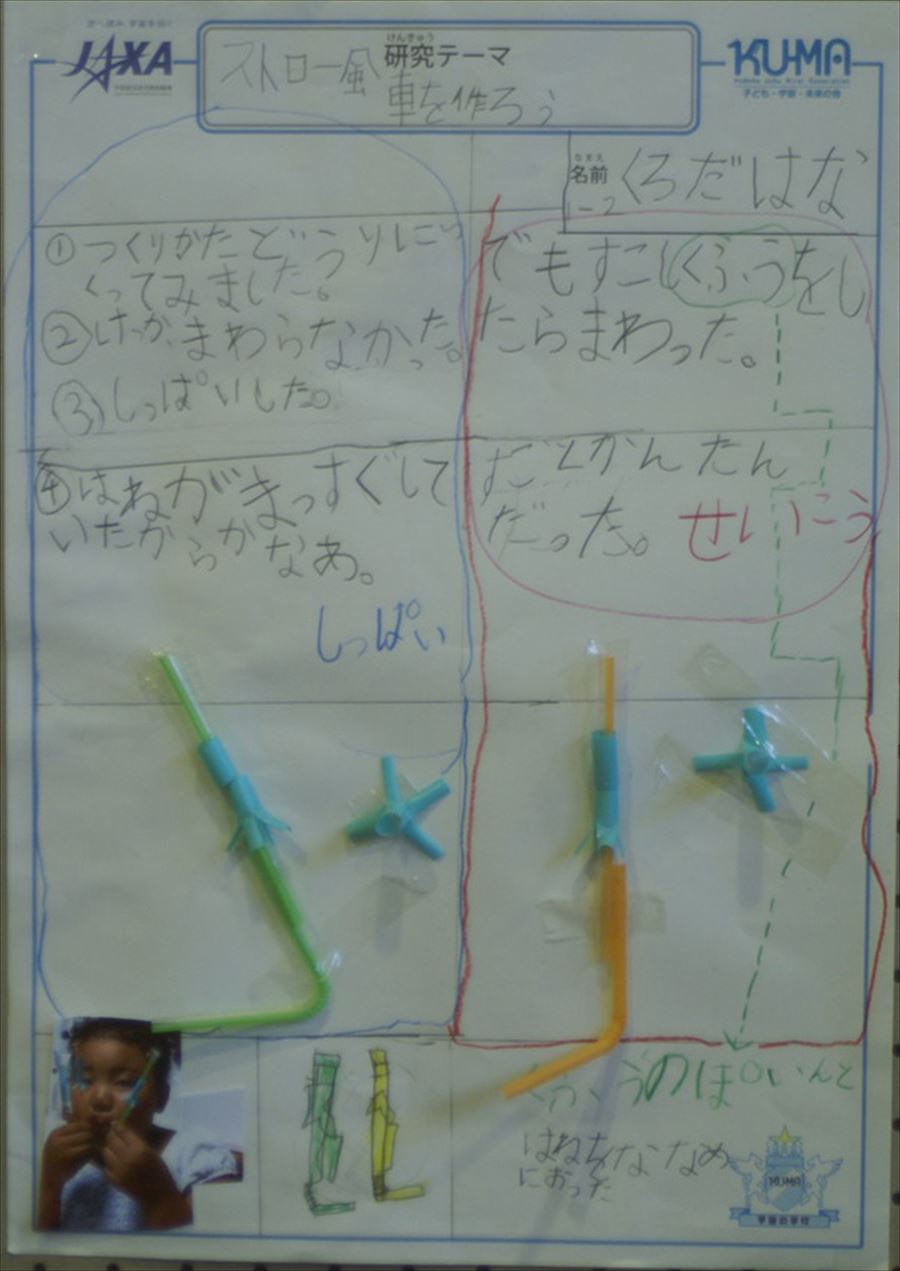 JAXA
けんきゅう
研究テーマ
ストロー風
車を作ろう
KU-MA
子ども・宇宙・未来の会
なまえ
名前
くろだはな
1-2
①つくりかたどうりにつ
くってみました。
②けっか、まわらなかった。
③しっぱいした。
④はねがまっすぐして
いたからかなあ。
しっぱい
でもすこしくふうをし
たらまわった。
すごくかんたん
だった。せいこう
くふうのぽいんと
はねをななめ
におった
KU-MA
宇宙の学校